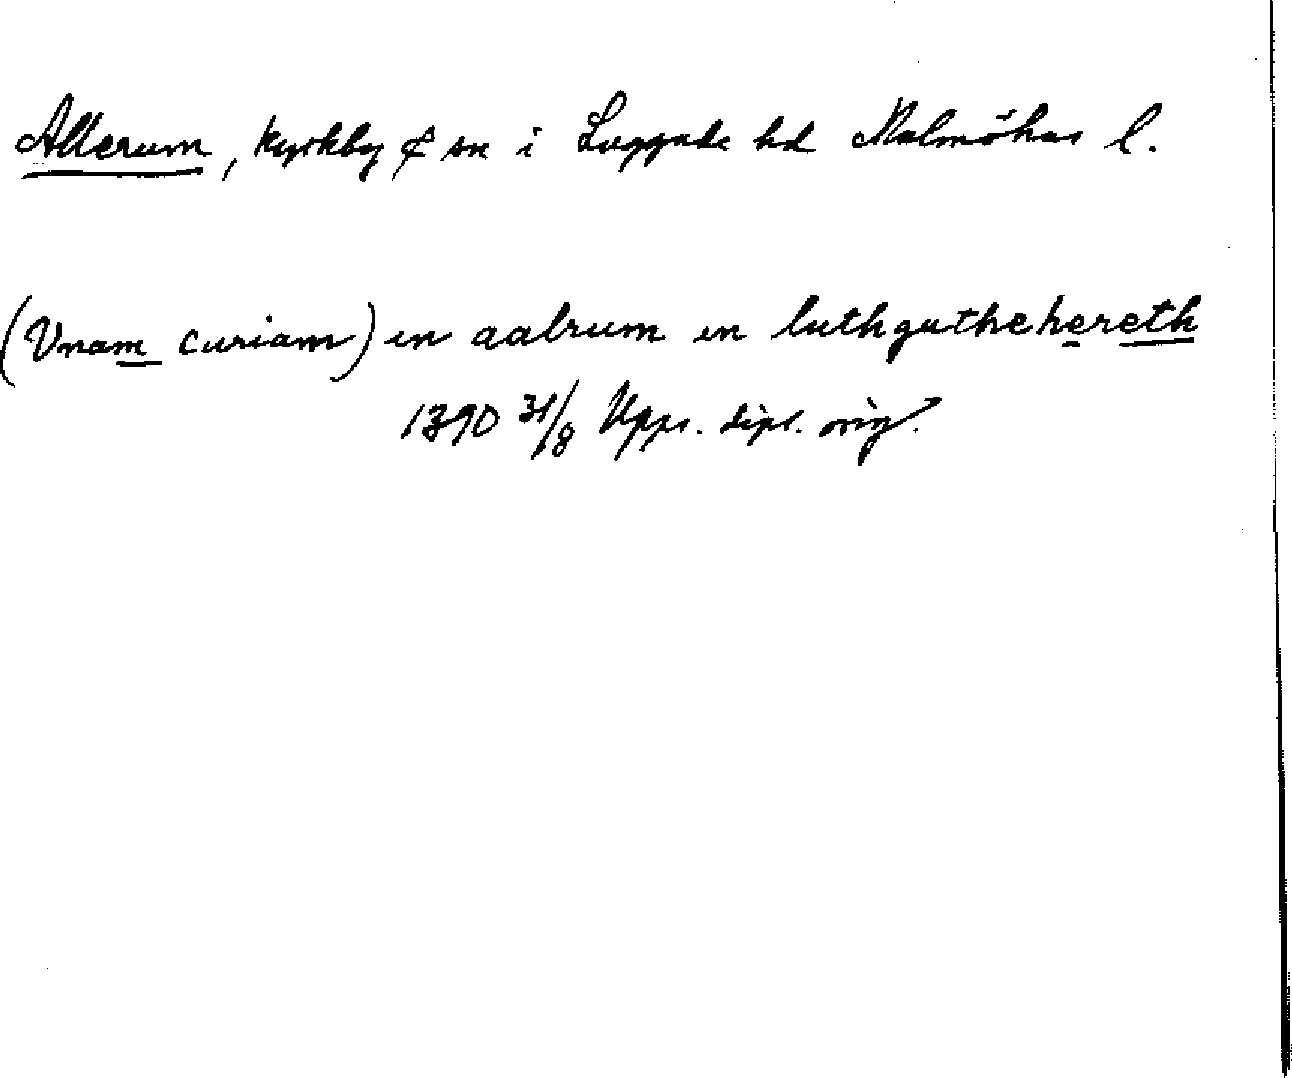 Allerum, kyrkby & sn i Luggude hd Malmöhus l.
(Vnam curiam) in aalrum in luthguthehereth
1390 31/8 Upps. dipl. orig.